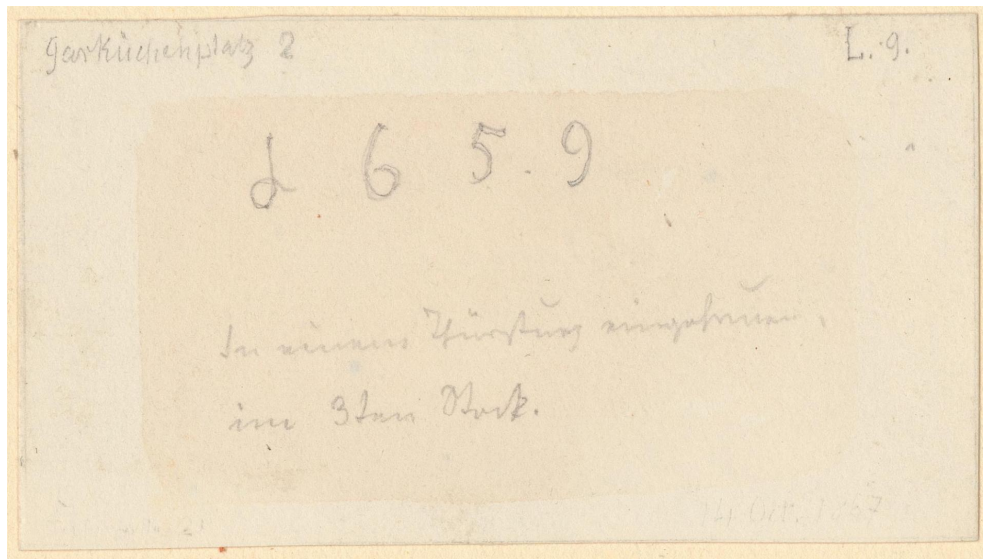 Garküchenplatz 2
L. 9.
1 6 5 9
In einem Thürsturz eingehauen,
im 3ten Stock.
14 Oct. 1867